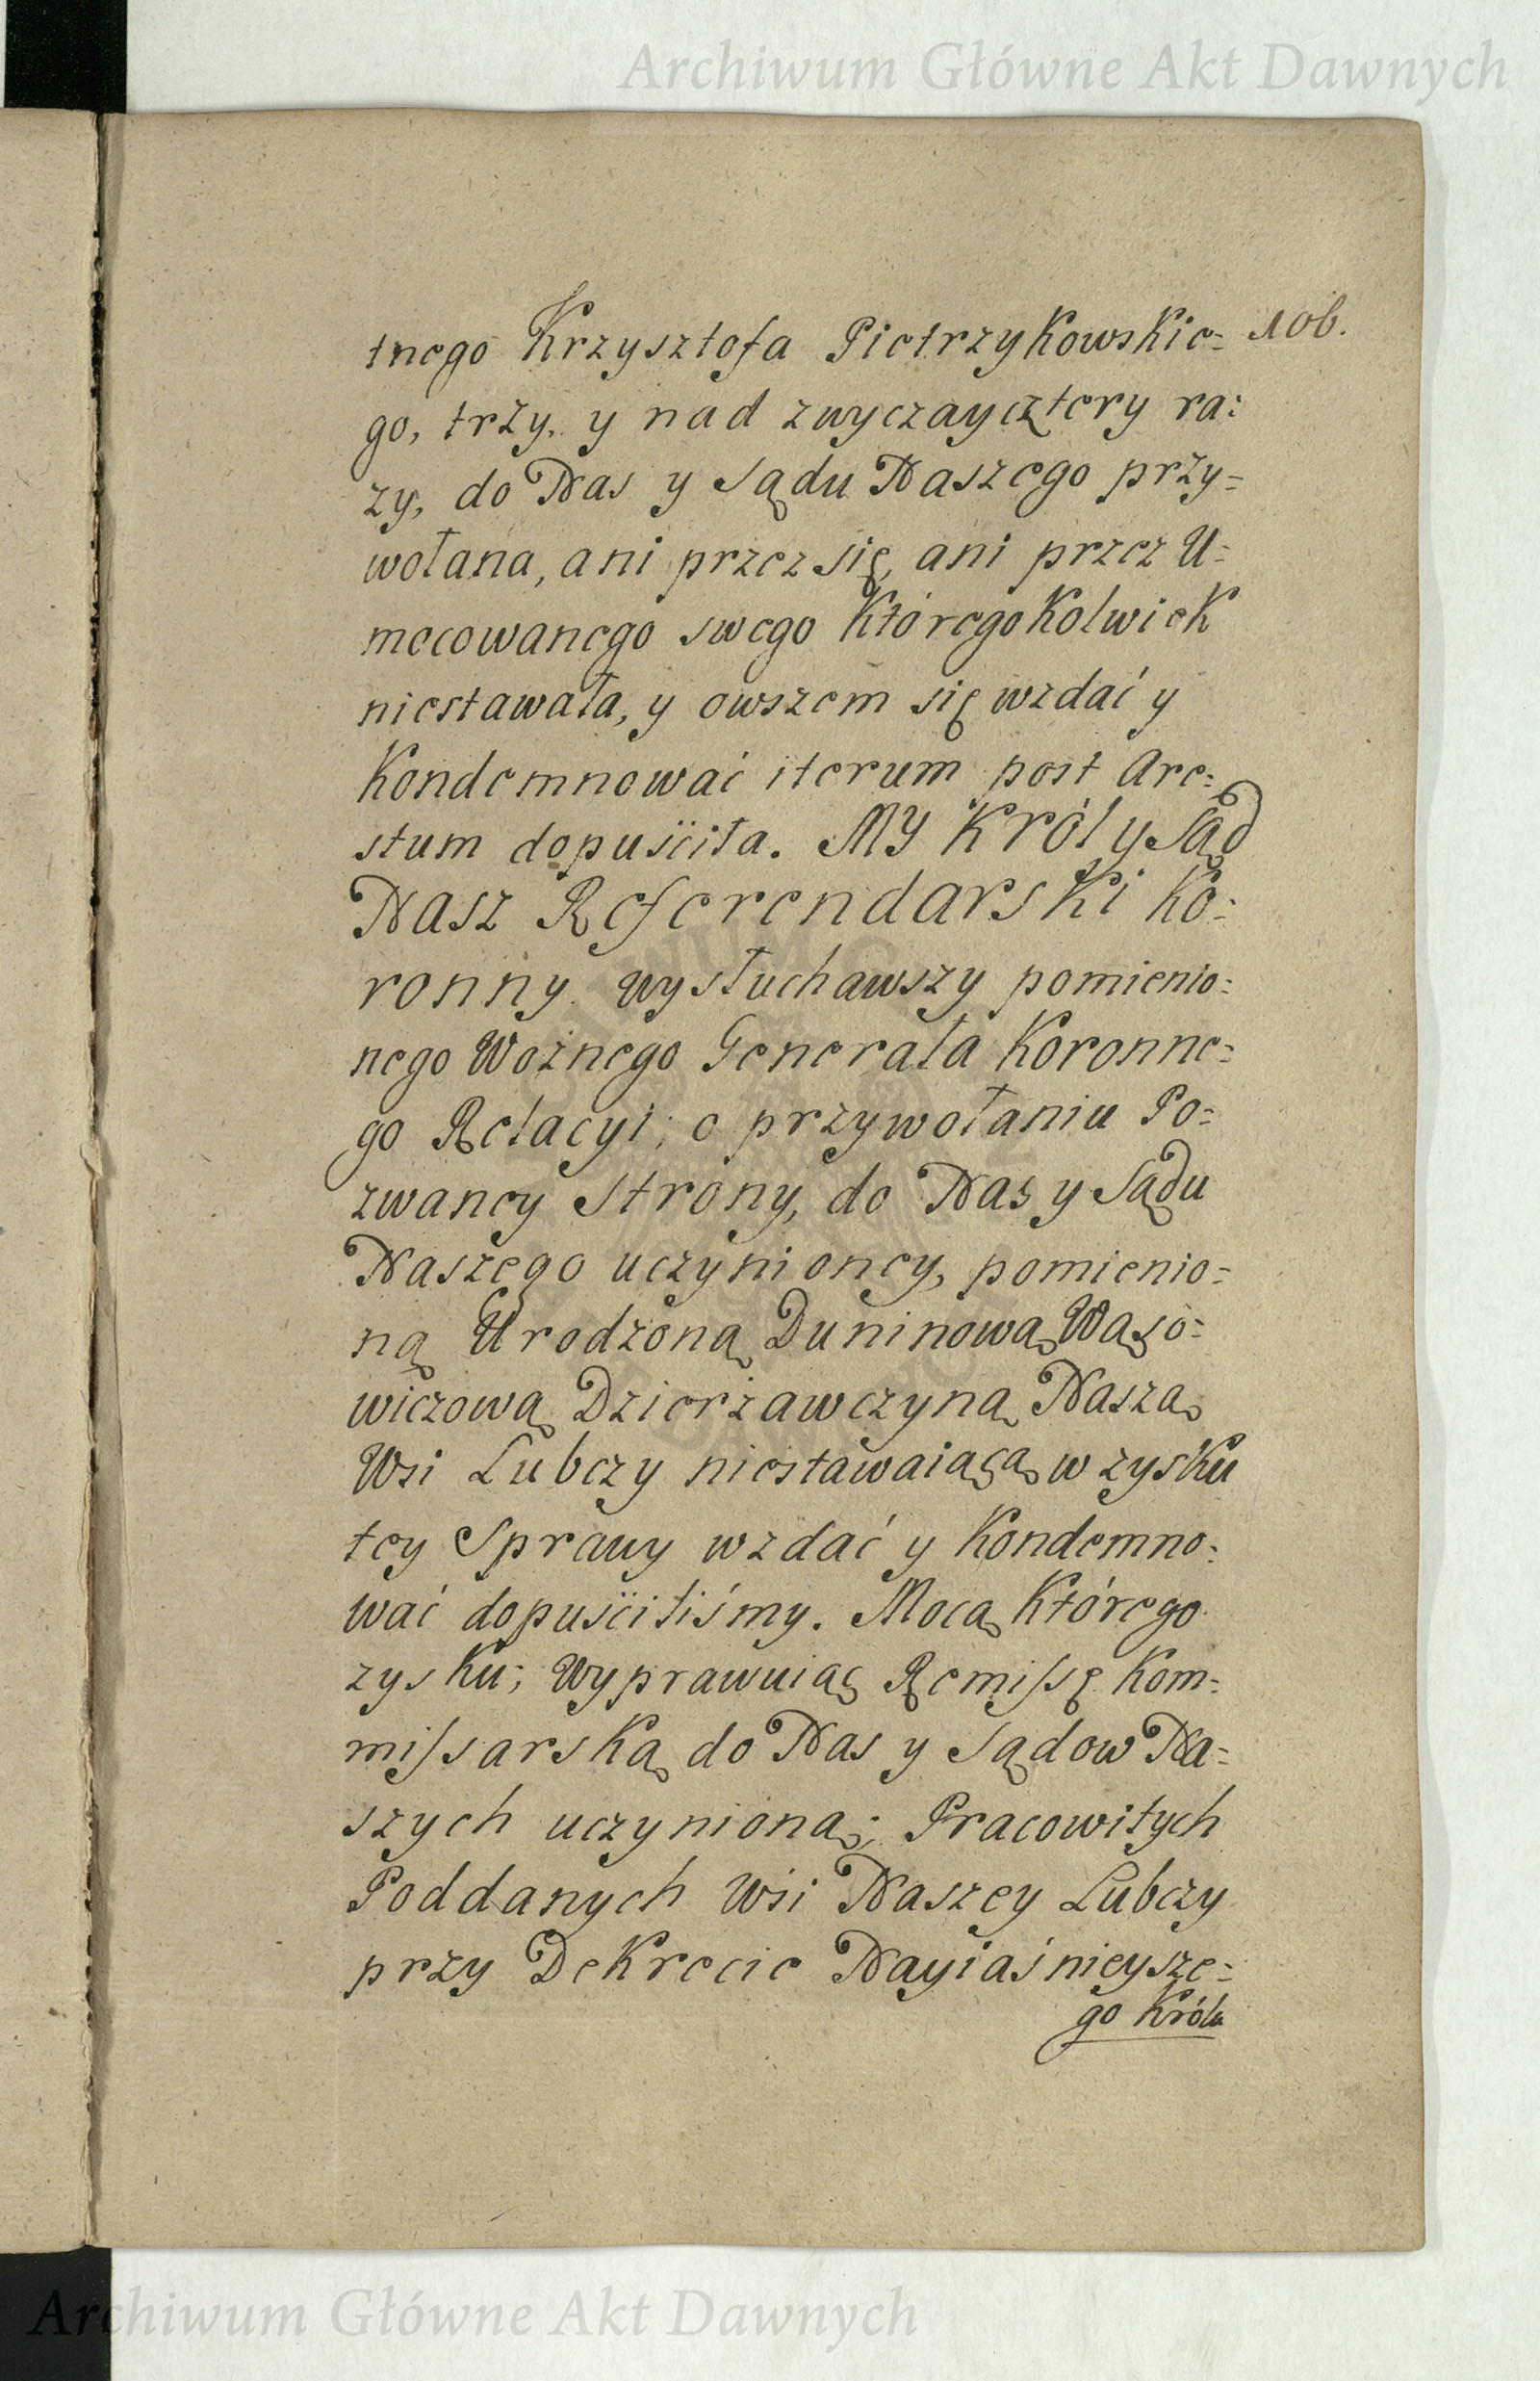 Archiwum Główne Akt Dawnych
tnego Krzysztofa Pietrzykowskie= 106.
go, trzy, y nad zwyczay cztery ra:
zy, do Nas y Sądu Naszego przy=
wołana, ani przez się, ani przez U=
mocowanego swego któregokolwiek
niestawała, y owszem się wzdać y
Kondemnować iterum post Are=
stum dopuściła. MY Król y Sąd
Nasz Referendarski Ko=
ronny wysłuchawszy pomienio=
nego Woźnego Generała Koronne=
go Relacyi, o przywołaniu Po=
zwaney Strony, do Nas y Sądu
Naszego uczynioney, pomienio=
ną Urodzoną Duninową Wąso=
wiczową Dzierżawczyną Naszą
Wsi Lubczy niestawaiącą w zysku
tey Sprawy wzdać y Kondemno=
wać dopuściliśmy. Mocą Którego
zysku; Wyprawuiąc Remissę Kom=
missarską do Nas y Sądow Na=
szych uczynioną; Pracowitych
Poddanych Wsi Naszey Lubczy
przy Dekrecie Nayiaśnieysze=
go Króla
Archiwum Główne Akt Dawnych